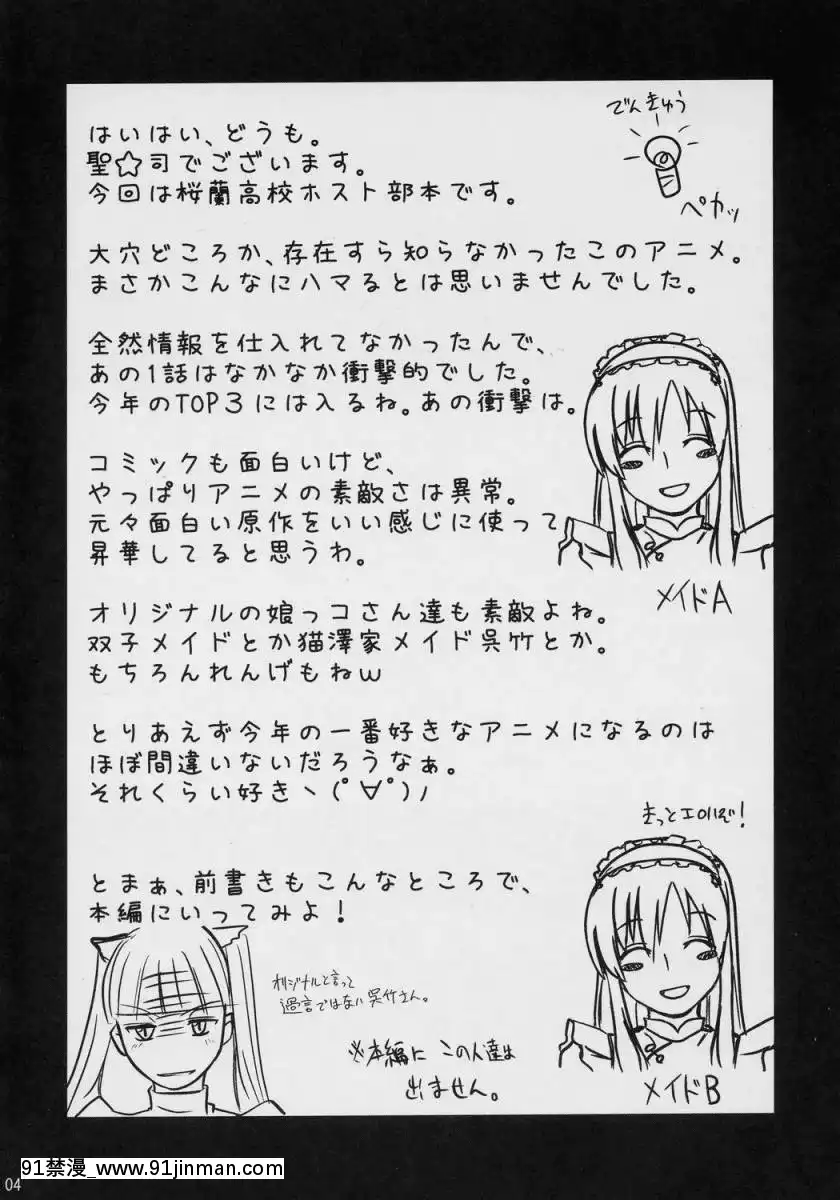 でんきゅう
ペカッ
はいはい、どうも。
聖☆司でございます。
今回は桜蘭高校ホスト部本です。
大穴どころか、存在すら知らなかったこのアニメ。
まさかこんなにハマるとは思いませんでした。
全然情報を仕入れてなかったんで、
あの1話はなかなか衝撃的でした。
今年のTOP3には入るね。あの衝撃は。
コミックも面白いけど、
やっぱりアニメの素敵さは異常。
元々面白い原作をいい感じに使って
昇華してると思うわ。
メイドA
オリジナルの娘っコさん達も素敵よね。
双子メイドとか猫澤家メイド呉竹とか。
もちろんれんげもねw
とりあえず今年の一番好きなアニメになるのは
ほぼ間違いないだろうなぁ。
それくらい好きヽ(ﾟ∀ﾟ)ﾉ
きっとエロいぞ!
とまぁ、前書きもこんなところで、
本編にいってみよ!
オリジナルと言って
過言ではない呉竹さん。
※本編にこの人達は
出ません。
メイドB
04
91禁漫_www.91jinman.com